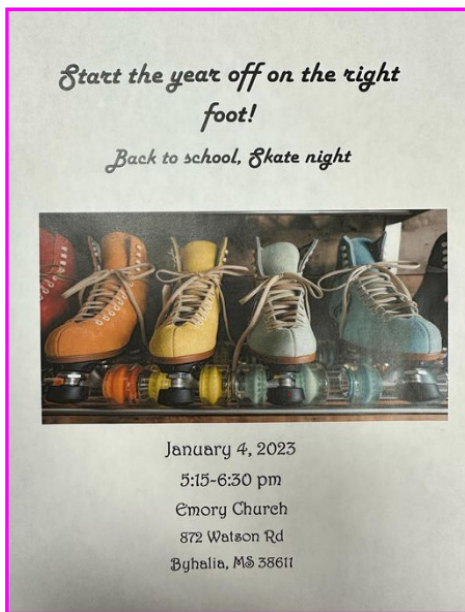 Start the year off on the right
foot!
Back to school, Skate night
January 4, 2023
5:15-6:30 pm
Emory Church
872 Watson Rd
Byhalia, MS 38611